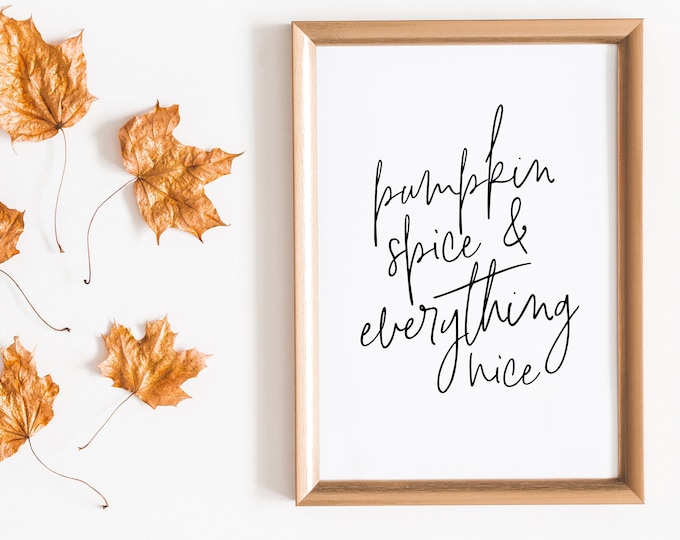 pumpkin
spice &
everything
nice